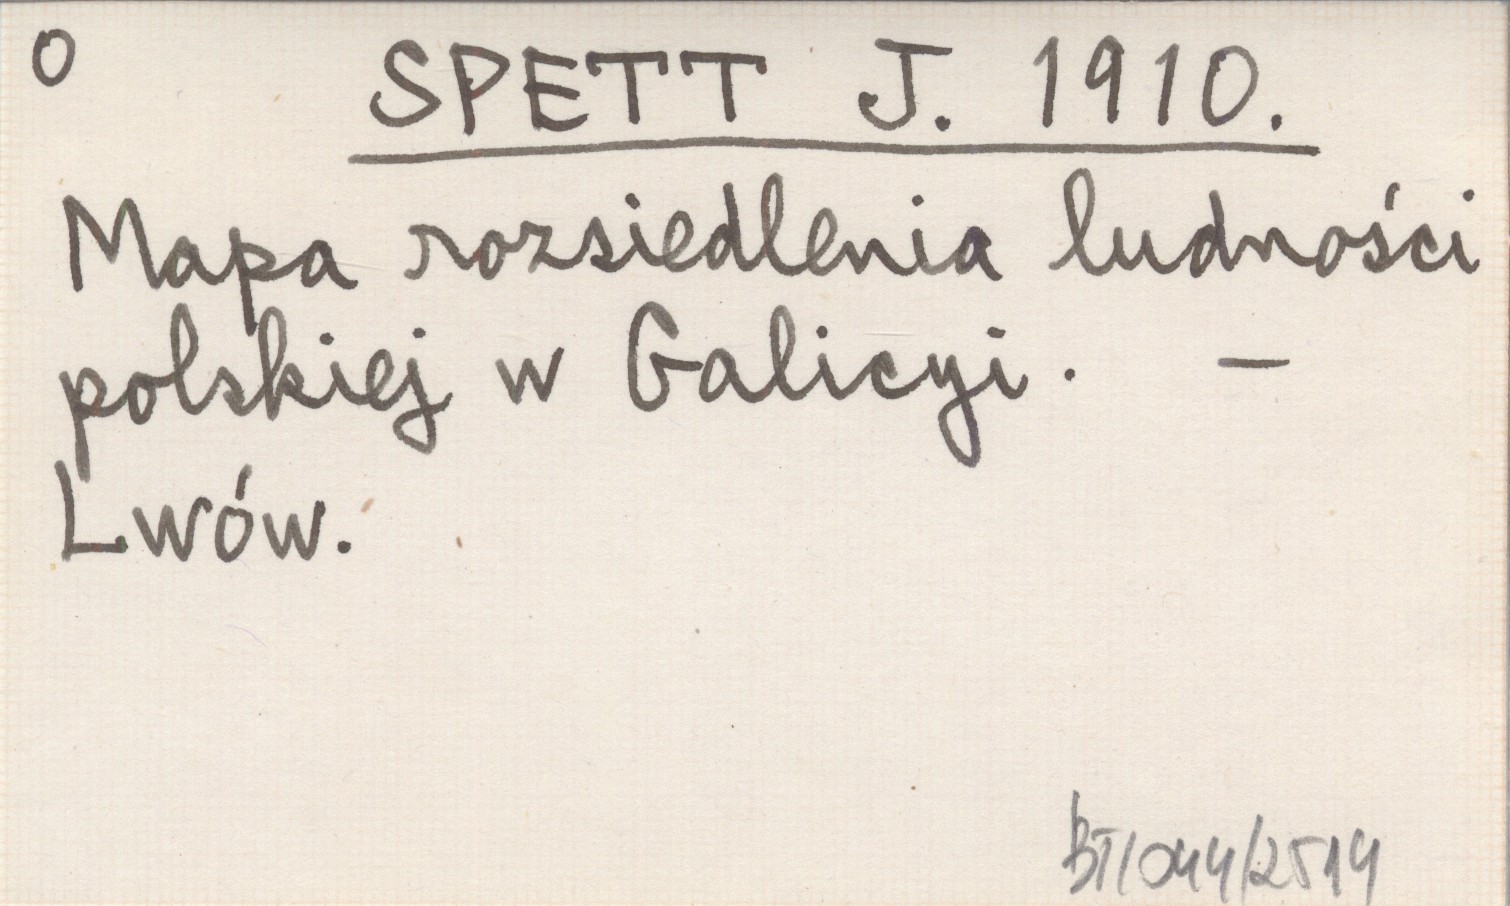 O
SPETT J. 1910.
Mapa rozsiedlenia ludności
polskiej w Galicyi. —
Lwów.
BT/044/2514